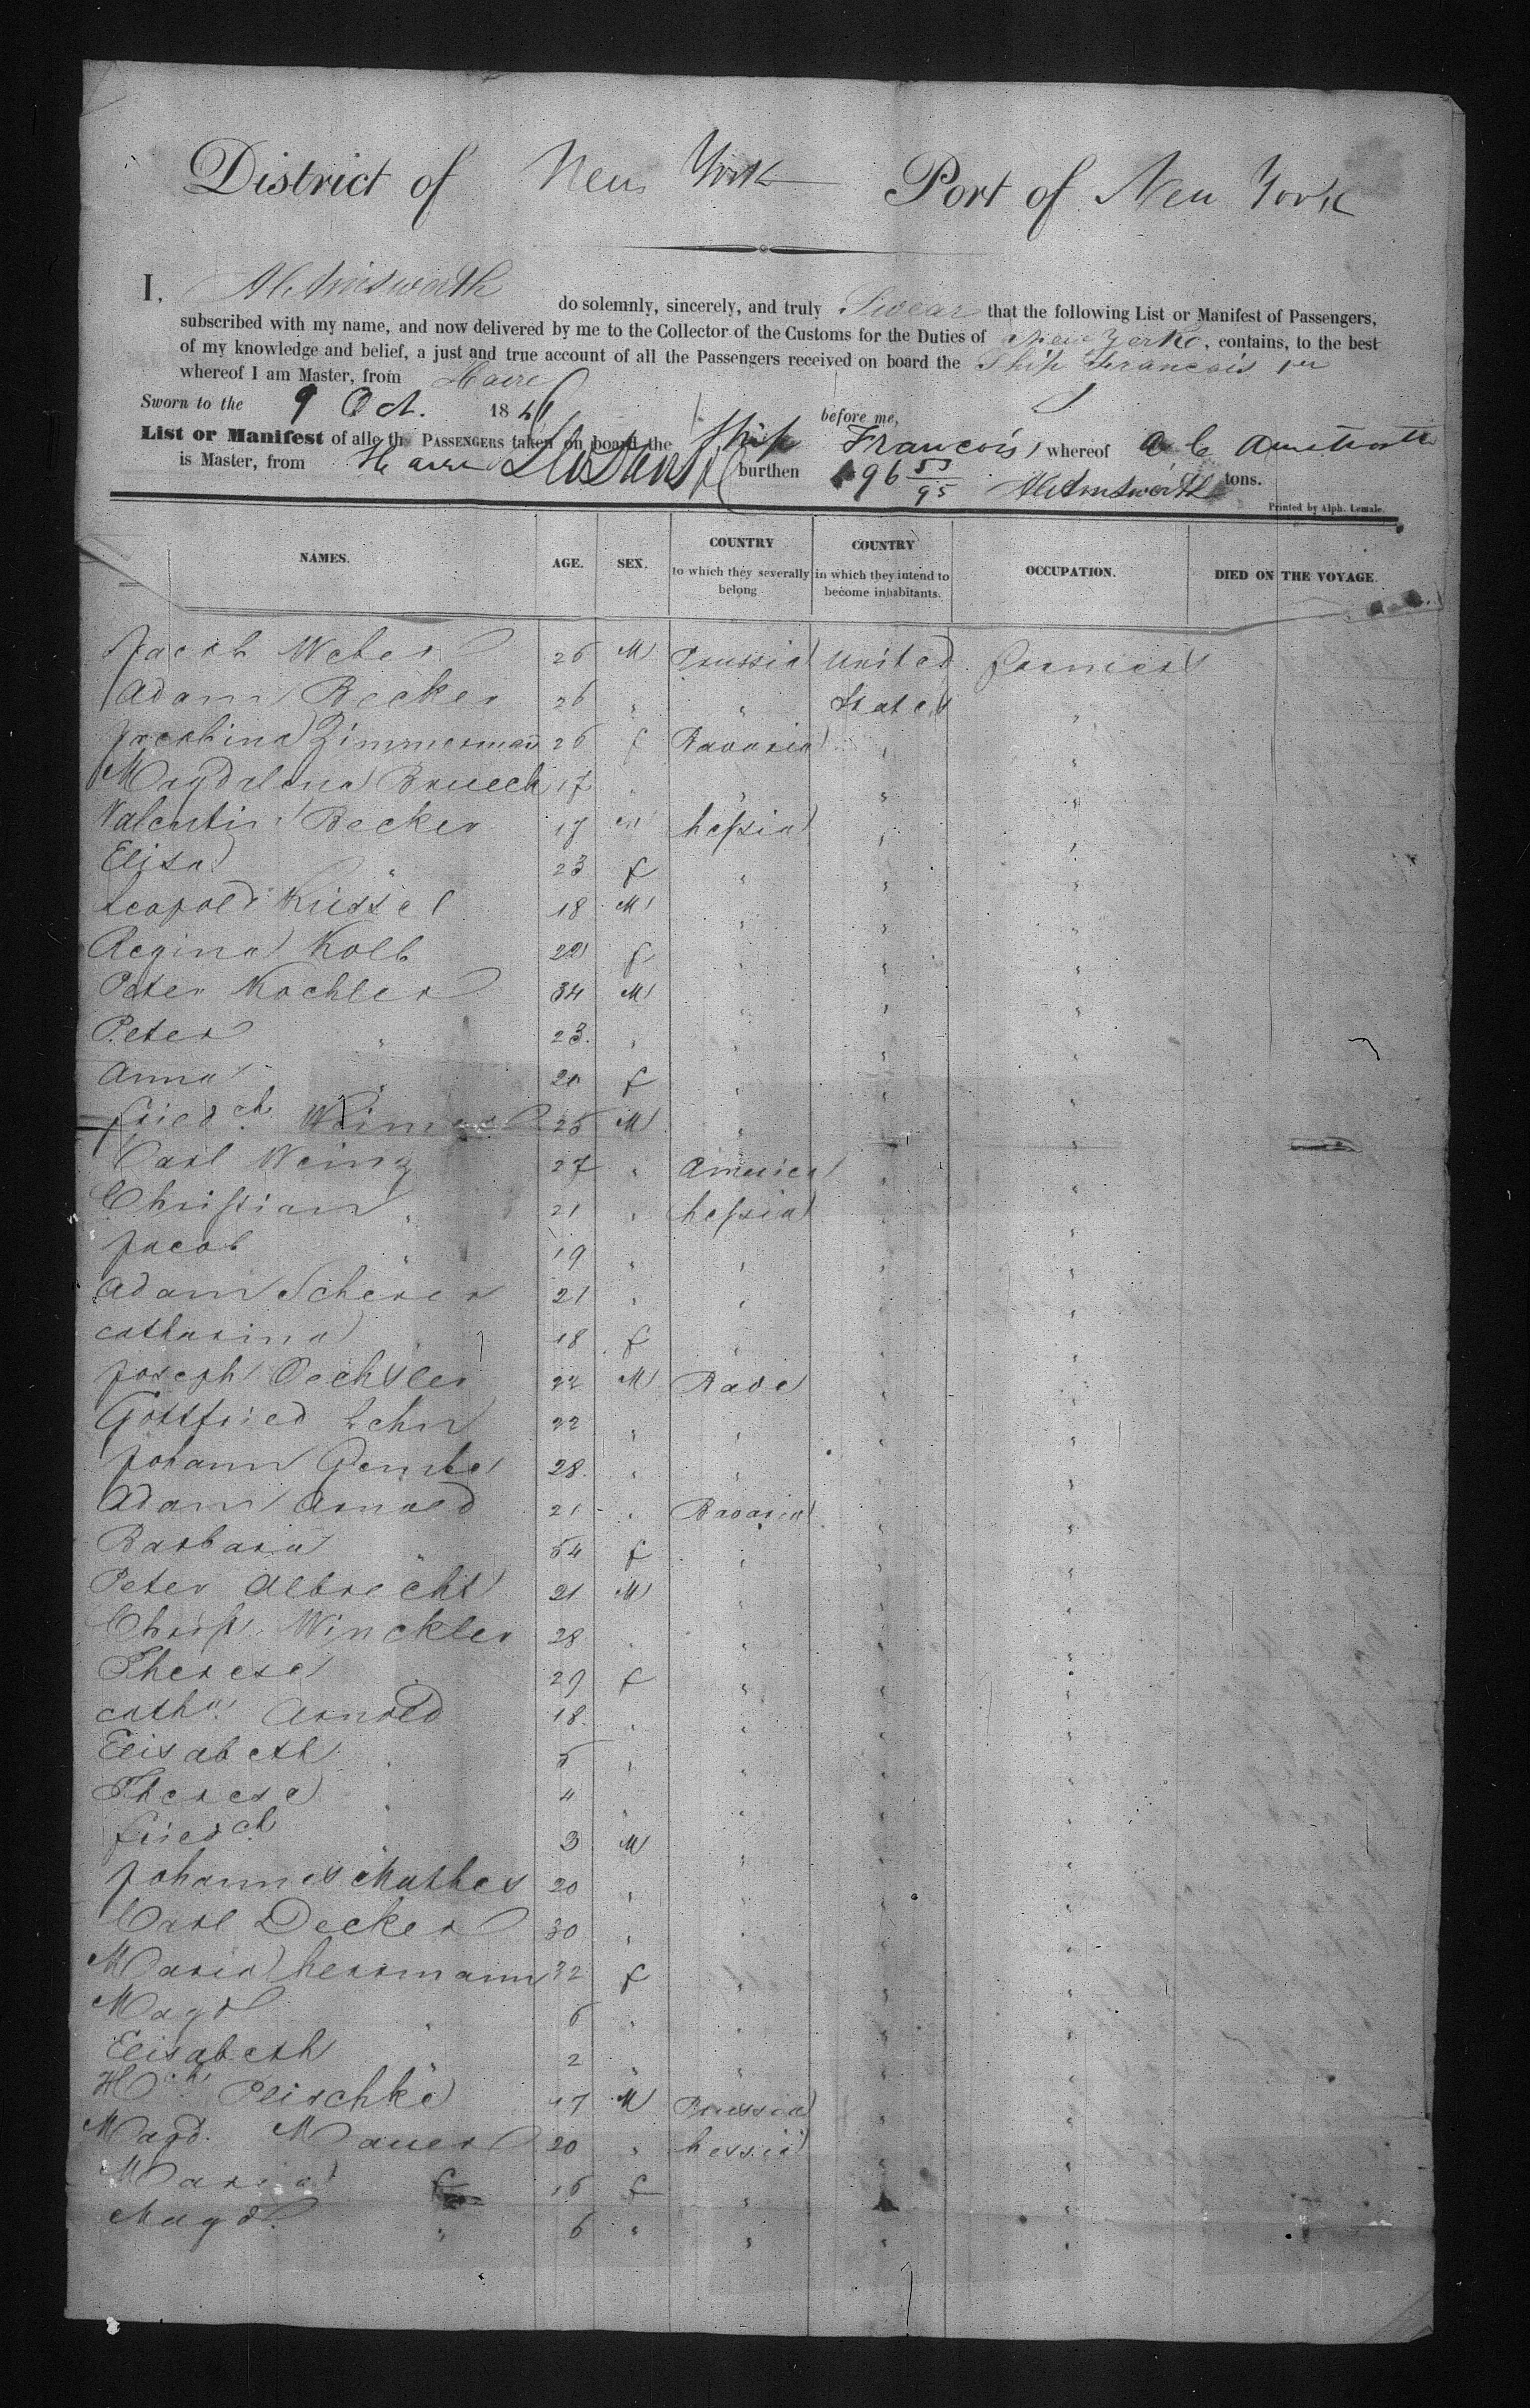 District of New York Port of New York
I, A C Ainsworth do solemnly, sincerely, and truly Swear that the following List or Manifest of Passengers,
subscribed with my name, and now delivered by me to the Collector of the Customs for the Duties of New York, contains, to the best
of my knowledge and belief, a just and true account of all the Passengers received on board the Ship Francois 1er
whereof I am Master, from Havre
Sworn to the 9 Oct. 184 before me,
List or Manifest of alle the PASSENGERS taken on board the Ship Francois 1 whereof A C Ainsworth
is Master, from Havre burthen 496 53/95 tons.
A C Ainsworth
Printed by Alph. Lemale.
NAMES. AGE. SEX. COUNTRY to which they severally belong COUNTRY in which they intend to become inhabitants. OCCUPATION. DIED ON THE VOYAGE.
Jacob Weber 26 M Prussia United farmer
Adam Becker 26 " " States "
Jacobina Zimmerman 26 f Bavaria " "
Magdalena Bruech 17 " " " "
Valentin Becker 17 M hessia " "
Elisa " 23 f " " "
Leopold Küssel 18 M " " "
Regina Kolb f " " "
Peter Kochler 34 M " " "
Peter " 23. " " " "
Anna " f " " "
Friedch. Weimer 25 M " " "
Carl Weing 27 " America " "
Christian " 21 " hessia " "
Jacob " 19 " " " "
Adam Scherer 21 " " " "
catharina " 18 f " " "
Joseph Oechsler 22 M Bade " "
Gottfried Lehn 22 " " " "
Johann 28. " " " "
Adam Arnold 21 " Bavaria " "
Barbara " 54 f " " "
Peter Albrecht 21 M " " "
Christ. Winckler 28 " " " "
Therese " 29 f " " "
catha. Arnold 18 " " " "
Elisabeth " 5 " " " "
Therese " 4 " " " "
friedch. " 3 M " " "
Johannes Mathes 20 " " " "
Carl Decker 30 " " " "
Maria herrmann 32 f " " "
Magd. " 6 " " " "
Elisabeth " 2 " " " "
Hch. Plischke 47 M Prussia " "
Magd. Mauer 20 " hessia " "
Maria 16 f " " "
Magd. " 6 " " " "